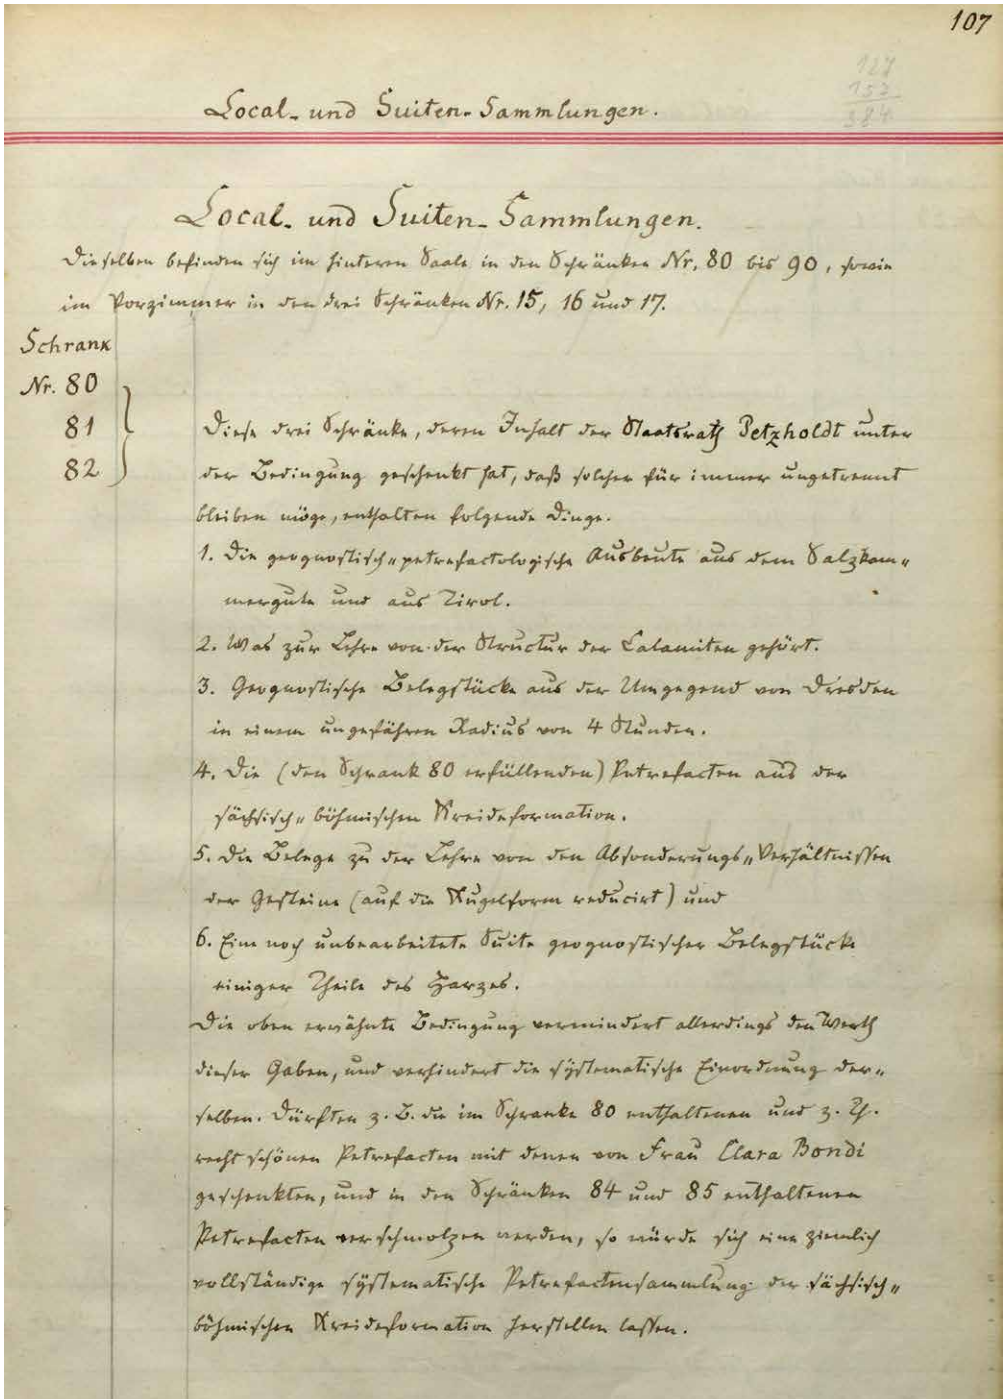 107
127
157
384
Local- und Suiten-Sammlungen.
Local- und Suiten-Sammlungen.
Dieselben befinden sich im hinteren Saale in den Schränken Nr. 80 bis 90, sowie
im Vorzimmer in den drei Schränken Nr. 15, 16 und 17.
Schrank
Nr. 80
81
82
Diese drei Schränke, deren Inhalt der Staatsrath Petzholdt unter
der Bedingung geschenkt hat, daß solcher für immer ungetrennt
bleiben möge, enthalten folgende Dinge.
1. Die geognostisch-petrefactologische Ausbeute aus dem Salzkam-
mergute und aus Tirol.
2. Was zur Lehre von der Structur der Calamiten gehört.
3. Geognostische Belegstücke aus der Umgegend von Dresden
in einem ungefähren Radius von 4 Stunden.
4. Die (den Schrank 80 erfüllenden) Petrefacten aus der
sächsisch-böhmischen Kreideformation.
5. Die Belege zu der Lehre von den Absonderungs-Verhältnissen
der Gesteine (auf die Kugelform reducirt) und
6. Eine noch unbearbeitete Suite geognostischer Belegstücke
einiger Theile des Harzes.
Die oben erwähnte Bedingung vermindert allerdings den Werth
dieser Gaben, und verhindert die systematische Einordnung der-
selben. Dürften z. B. die im Schranke 80 enthaltenen und z. Th.
recht schönen Petrefacten mit denen von Frau Clara Bondi
geschenkten, und in den Schränken 84 und 85 enthaltenen
Petrefacten verschmolzen werden, so würde sich eine ziemlich
vollständige systematische Petrefactensammlung der sächsisch-
böhmischen Kreideformation herstellen lassen.